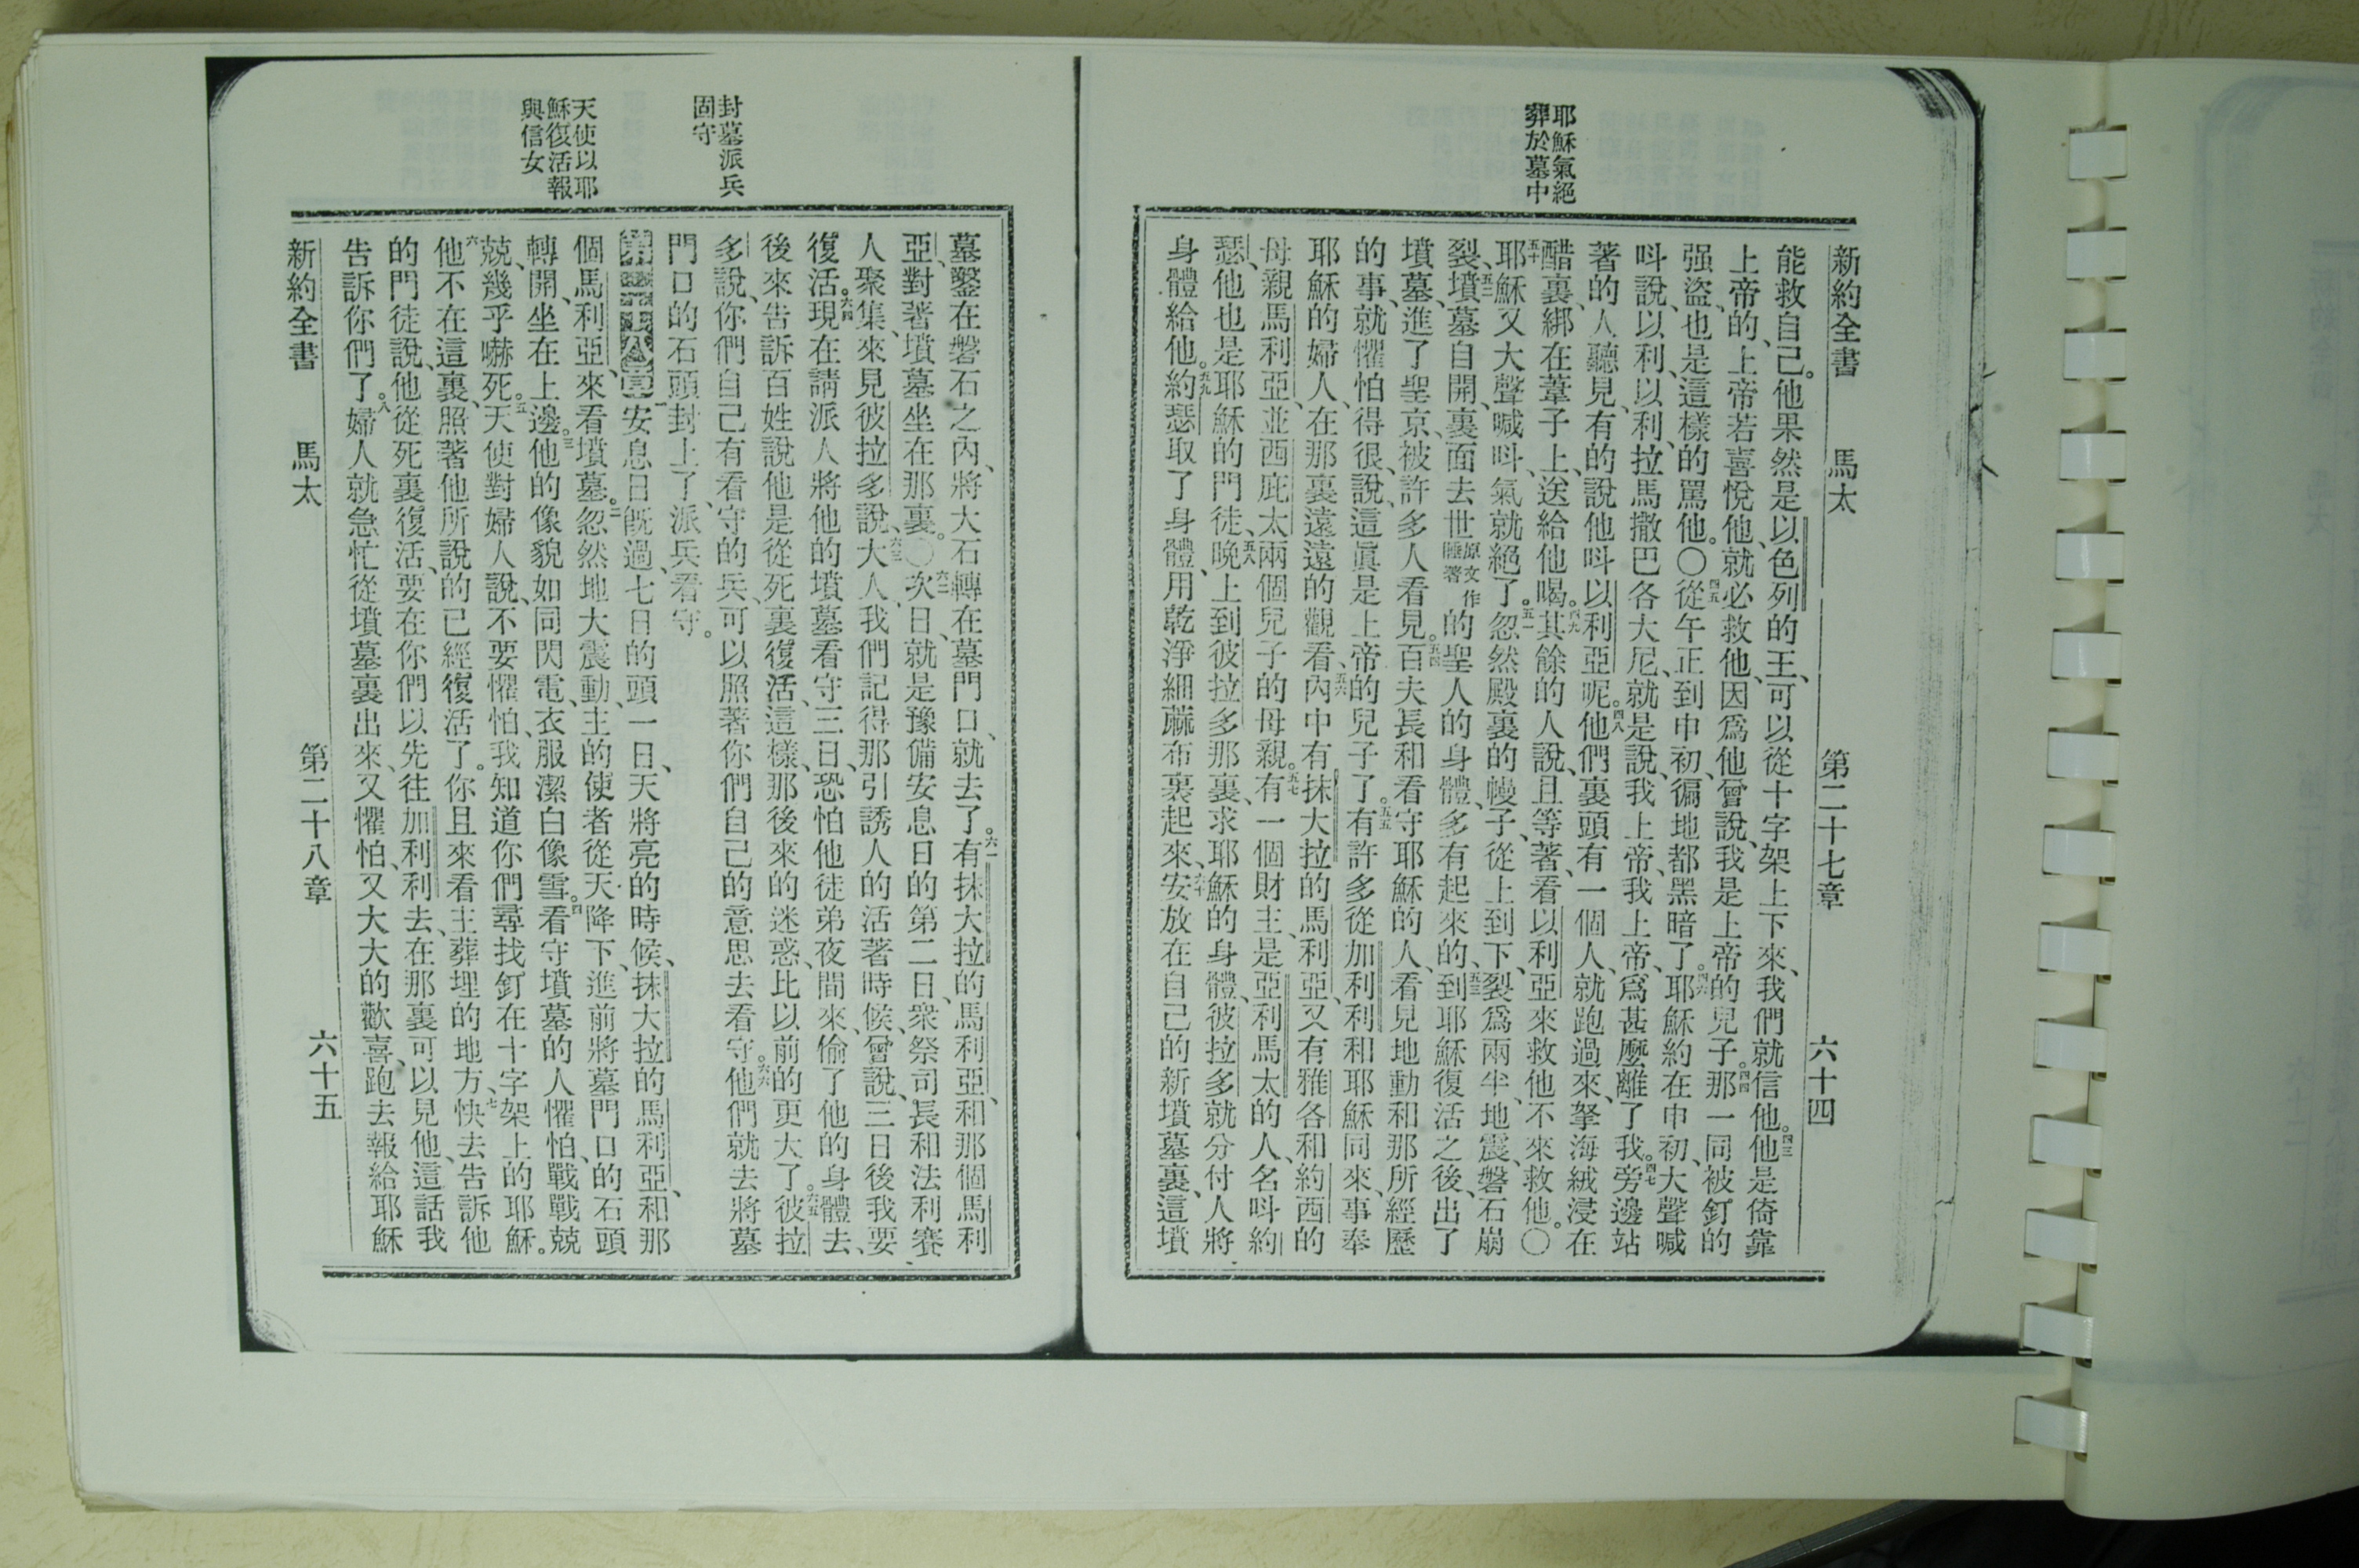 新約全書 馬太 第二十七章 六十四
耶穌氣絕
葬於墓中
能救自己。他果然是以色列的王、可以從十字架上下來、我們就信他。四三他是倚靠
上帝的、上帝若喜悅他、就必救他、因爲他曾說、我是上帝的兒子。四四那一同被釘的
强盜、也是這樣的罵他。〇四五從午正到申初、徧地都黑暗了。四六耶穌約在申初、大聲喊
呌說、以利、以利、拉馬撒巴各大尼、就是說、我上帝、我上帝、爲甚麼離了我。四七旁邊站
著的人聽見、有的說他呌以利亞呢。四八他們裏頭有一個人、就跑過來、拏海絨浸在
醋裏、綁在葦子上、送給他喝。四九其餘的人說、且等著、看以利亞來救他不來救他。〇
五十耶穌又大聲喊呌、氣就絕了。五一忽然殿裏的幔子、從上到下、裂爲兩半、地震、磐石崩
裂、五二墳墓自開、裏面去世原文作睡著的聖人的身體、多有起來的、五三到耶穌復活之後、出了
墳墓、進了聖京、被許多人看見。五四百夫長和看守耶穌的人、看見地動和那所經歷
的事、就懼怕得很、說、這眞是上帝的兒子了。五五有許多從加利利和耶穌同來、事奉
耶穌的婦人、在那裏遠遠的觀看、五六內中有抹大拉的馬利亞、又有雅各和約西的
母親馬利亞、並西庇太兩個兒子的母親。五七有一個財主、是亞利馬太的人、名呌約
瑟、他也是耶穌的門徒、五八晚上到彼拉多那裏、求耶穌的身體、彼拉多就分付人將
身體給他。五九約瑟取了身體、用乾淨細蔴布裹起來、六十安放在自己的新墳墓裏、這墳
墓鑿在磐石之內、將大石轉在墓門口、就去了。六一有抹大拉的馬利亞、和那個馬利
亞、對著墳墓坐在那裏。〇六二次日、就是豫備安息日的第二日、衆祭司長和法利賽
人聚集、來見彼拉多說、六三大人、我們記得那引誘人的活著時候、曾說、三日後我要
復活。六四現在請派人將他的墳墓看守三日、恐怕他徒弟夜間來、偷了他的身體去、
後來告訴百姓說他是從死裏復活、這樣、那後來的迷惑、比以前的更大了。六五彼拉
多說、你們自己有看守的兵、可以照著你們自己的意思去看守。六六他們就去將墓
門口的石頭封上了、派兵看守。
封墓派兵
固守
第二十八章一安息日旣過、七日的頭一日、天將亮的時候、抹大拉的馬利亞、和那
個馬利亞、來看墳墓。二忽然地大震動、主的使者從天降下、進前將墓門口的石頭
轉開、坐在上邊。三他的像貌如同閃電、衣服潔白像雪。四看守墳墓的人懼怕、戰戰兢
兢、幾乎嚇死。五天使對婦人說、不要懼怕、我知道你們尋找釘在十字架上的耶穌。
六他不在這裏、照著他所說的已經復活了。你且來看主葬埋的地方、七快去告訴他
的門徒說、他從死裏復活、要在你們以先往加利利去、在那裏可以見他、這話我
告訴你們了。八婦人就急忙從墳墓裏出來、又懼怕、又大大的歡喜、跑去報給耶穌
天使以耶
穌復活報
與信女
新約全書 馬太 第二十八章 六十五